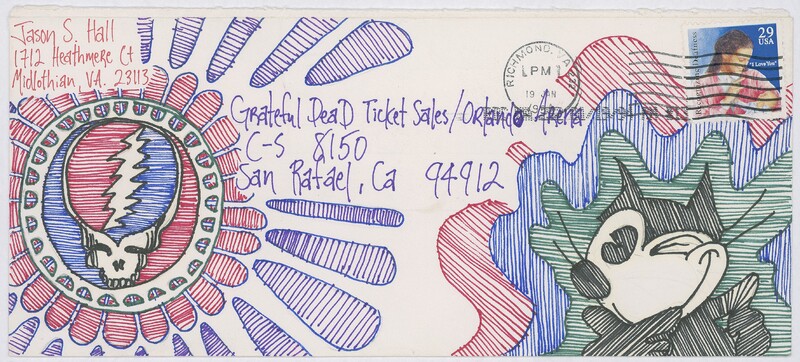 Jason S. Hall
1712 Heathmere Ct
Midlothian, VA. 23113
RICHMOND, VA
PM
19 JAN
29
USA
"I Love You"
Grateful DeaD Ticket Sales/Orlando Arena
C-S 8150
San Rafael, Ca 94912